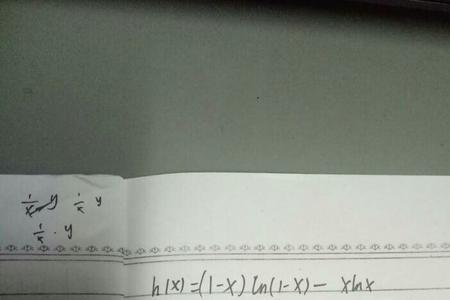 1/x y 1/x y
1/x · y
h(x)=(1-x)ln(1-x)- xlnx